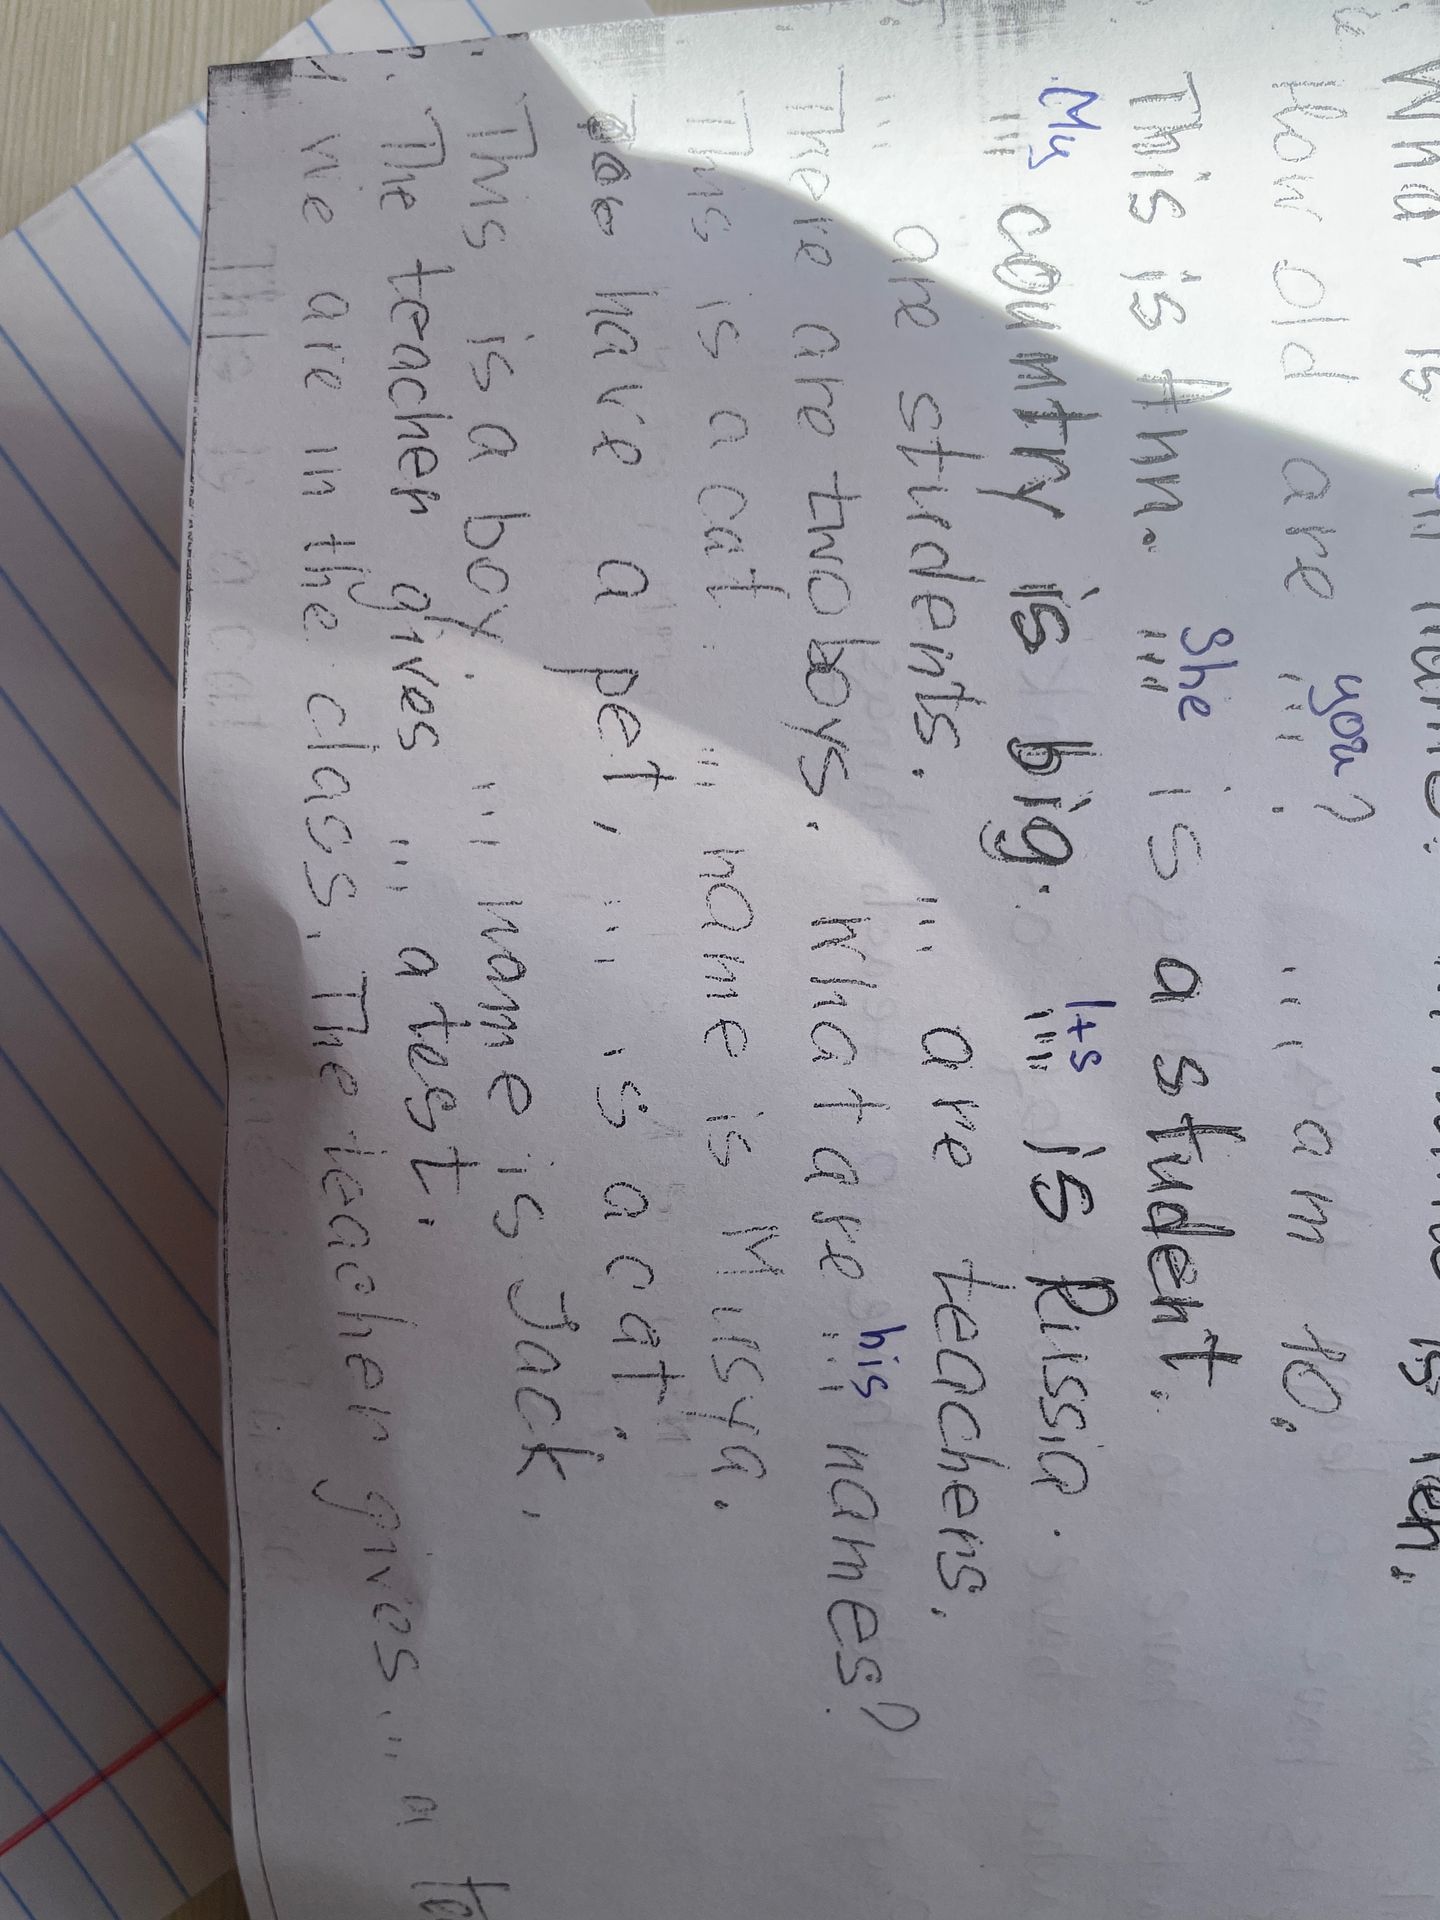 What is ... name? ... name is Ten.
How old are you ...? ... am 10.
This is Ann. She ... is a student.
My ... country is big. Its ... is Russia.
... are students. ... are teachers.
There are two boys. What are his ... names?
This is a cat. ... name is Musya.
have a pet, ... is a cat.
This is a boy ... name is Jack.
The teacher gives ... a test.
we are in the class. The teacher gives ... a